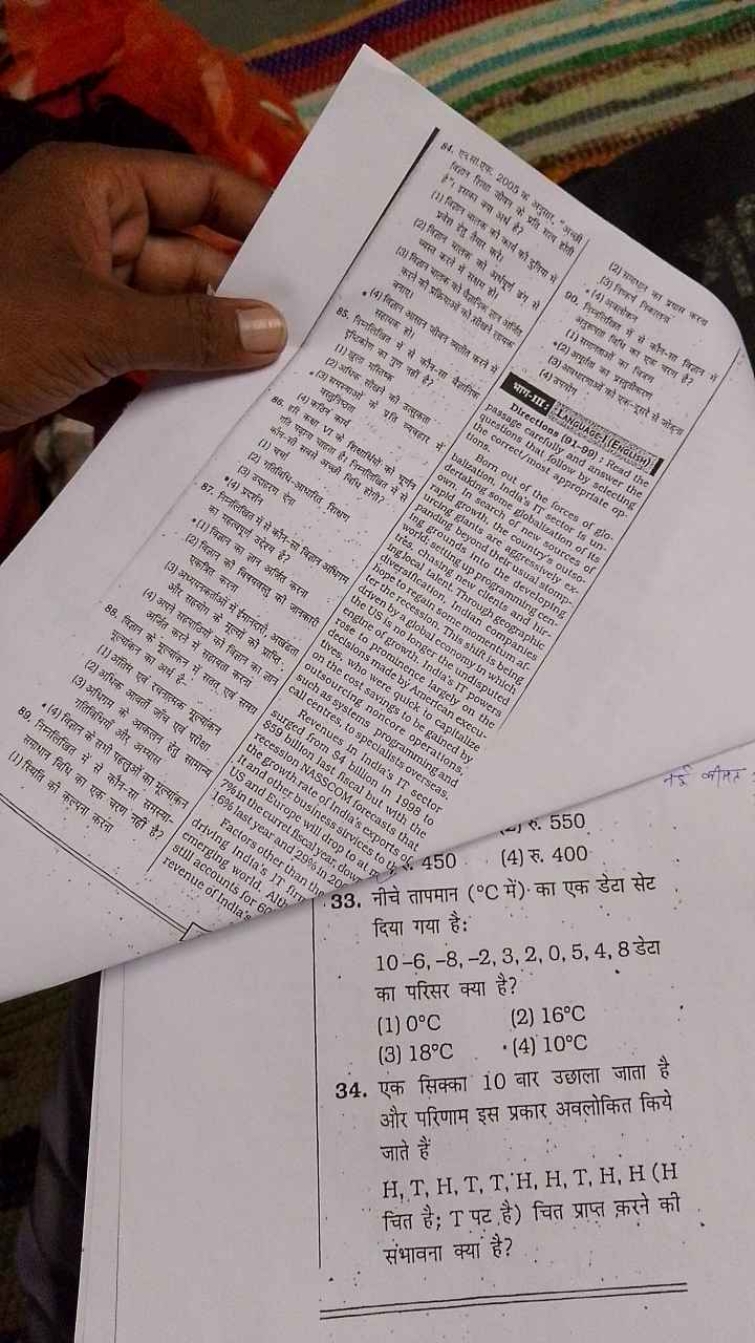 84. एन.सी.एफ. 2005 के अनुसार, "अच्छी
विज्ञान शिक्षा जीवन के प्रति सत्य होती
है"। इसका क्या अर्थ है?
(1) विज्ञान बालक को कार्य की दुनिया में
प्रवेश हेतु तैयार करे।
(2) विज्ञान बालक को अर्थपूर्ण ढंग से
व्यक्त करने में सक्षम हो।
(3) विज्ञान बालक को वैज्ञानिक ज्ञान अर्जित
करने की प्रक्रियाओं को सीखने लायक
बनाए।
(4) विज्ञान आसान जीवन व्यतीत करने में
सहायक हो।
85. निम्नलिखित में से कौन-सा वैज्ञानिक
दृष्टिकोण का गुण नहीं है?
(1) खुला मस्तिष्क
(2) अधिक सीखने की उत्सुकता
(3) समस्याओं के प्रति व्यवहार में
वस्तुनिष्ठता
(4) कठिन कार्य
86. हरि कक्षा VI के शिक्षार्थियों को घूर्णन
गति पढ़ाना चाहता है। निम्नलिखित में से
कौन-सी सबसे अच्छी विधि होगी?
(1) चर्चा
(2) गतिविधि-आधारित शिक्षण
(3) उदाहरण देना
(4) प्रदर्शन
87. निम्नलिखित में से कौन-सा विज्ञान अधिगम
का महत्वपूर्ण उद्देश्य है?
(1) विज्ञान का ज्ञान अर्जित करना
(2) विज्ञान की विषयवस्तु की जानकारी
एकत्रित करना
(3) अध्ययनकर्ताओं में ईमानदारी, अखंडता
और सहयोग के मूल्यों को प्राप्त
अर्जित करने में सहायता करना
(4) अपने सहपाठियों को विज्ञान का ज्ञान
88. विज्ञान के मूल्यांकन में सतत् एवं समग्र
मूल्यांकन का अर्थ है-
(1) अंतिम एवं रचनात्मक मूल्यांकन
(2) अधिक आवर्ती जाँच एवं परीक्षा
(3) अधिगम के आकलन हेतु सामान्य
गतिविधियाँ और अभ्यास
(4) विज्ञान के सभी पहलुओं का मूल्यांकन
89. निम्नलिखित में से कौन-सा समस्या-
समाधान विधि का एक चरण नहीं है?
(1) स्थिति की कल्पना करना
(2) समाधान का प्रयास करना
(3) निष्कर्ष निकालना
(4) अवलोकन
90. निम्नलिखित में से कौन-सा विज्ञान में
अनुरूपता विधि का एक चरण है?
(1) समानताओं का चित्रण
(2) अमूर्तता का प्रस्तुतीकरण
(3) अवधारणाओं को एक-दूसरे से जोड़ना
(4) उपयोग
भाग-III : LANGUAGE-I (ENGLISH)
Directions (91-99) : Read the
passage carefully and answer the
questions that follow by selecting
the correct/most appropriate op-
tions.
Born out of the forces of glo-
balization, India's IT sector is un-
dertaking some globalization of its
own. In search of new sources of
rapid growth, the country's outso-
urcing giants are aggressively ex-
panding beyond their usual stomp-
ing grounds into the developing
world; setting up programming cen-
tres, chosing new clients and hir-
ing local talent. Through geographic
diversification, Indian companies
hope to regain some momentum af-
ter the recession. This shift is being
driven by a global economy in which
the US is no longer the undisputed
engine of growth. India's IT powers
rose to prominence largely on the
decisions made by American execu-
tives, who were quick to capitalize
on the cost savings to be gained by
outsourcing noncore operations,
such as systems programming and
call centres, to specialists overseas.
Revenues in India's IT sector
surged from $4 billion in 1998 to
$59 billion last fiscal but with the
recession NASSCOM forecasts that
the growth rate of India's exports of
It and other business sirvices to
US and Europe will drop to at
7% in the curret fiscal year, down
16% last year and 29% in 20
Factors other than the
driving India's IT firm
emerging world. Alth
still accounts for 60
revenue of India's
नई कीमत
(2) रु. 550
रु. 450 (4) रु. 400
33. नीचे तापमान (°C में) का एक डेटा सेट
दिया गया है:
10 –6, –8, –2, 3, 2, 0, 5, 4, 8 डेटा
का परिसर क्या है?
(1) 0°C (2) 16°C
(3) 18°C (4) 10°C
34. एक सिक्का 10 बार उछाला जाता है
और परिणाम इस प्रकार अवलोकित किये
जाते हैं
H, T, H, T, T, H, H, T, H, H (H
चित है; T पट है) चित प्राप्त करने की
संभावना क्या है?